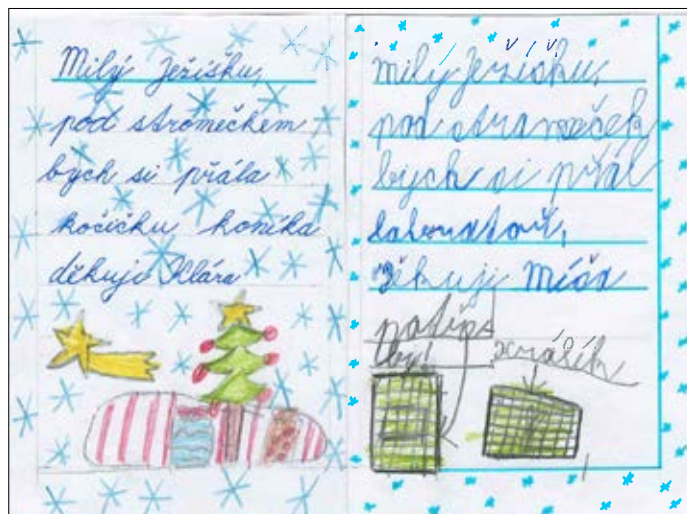 Milý Ježíšku,
pod stromečkem
bych si přála
kočičku koníka
děkuji Klára
milý Ježíšku,
pod stromeček
bych si přál
laboratoř,
Děkuji Míša
králík